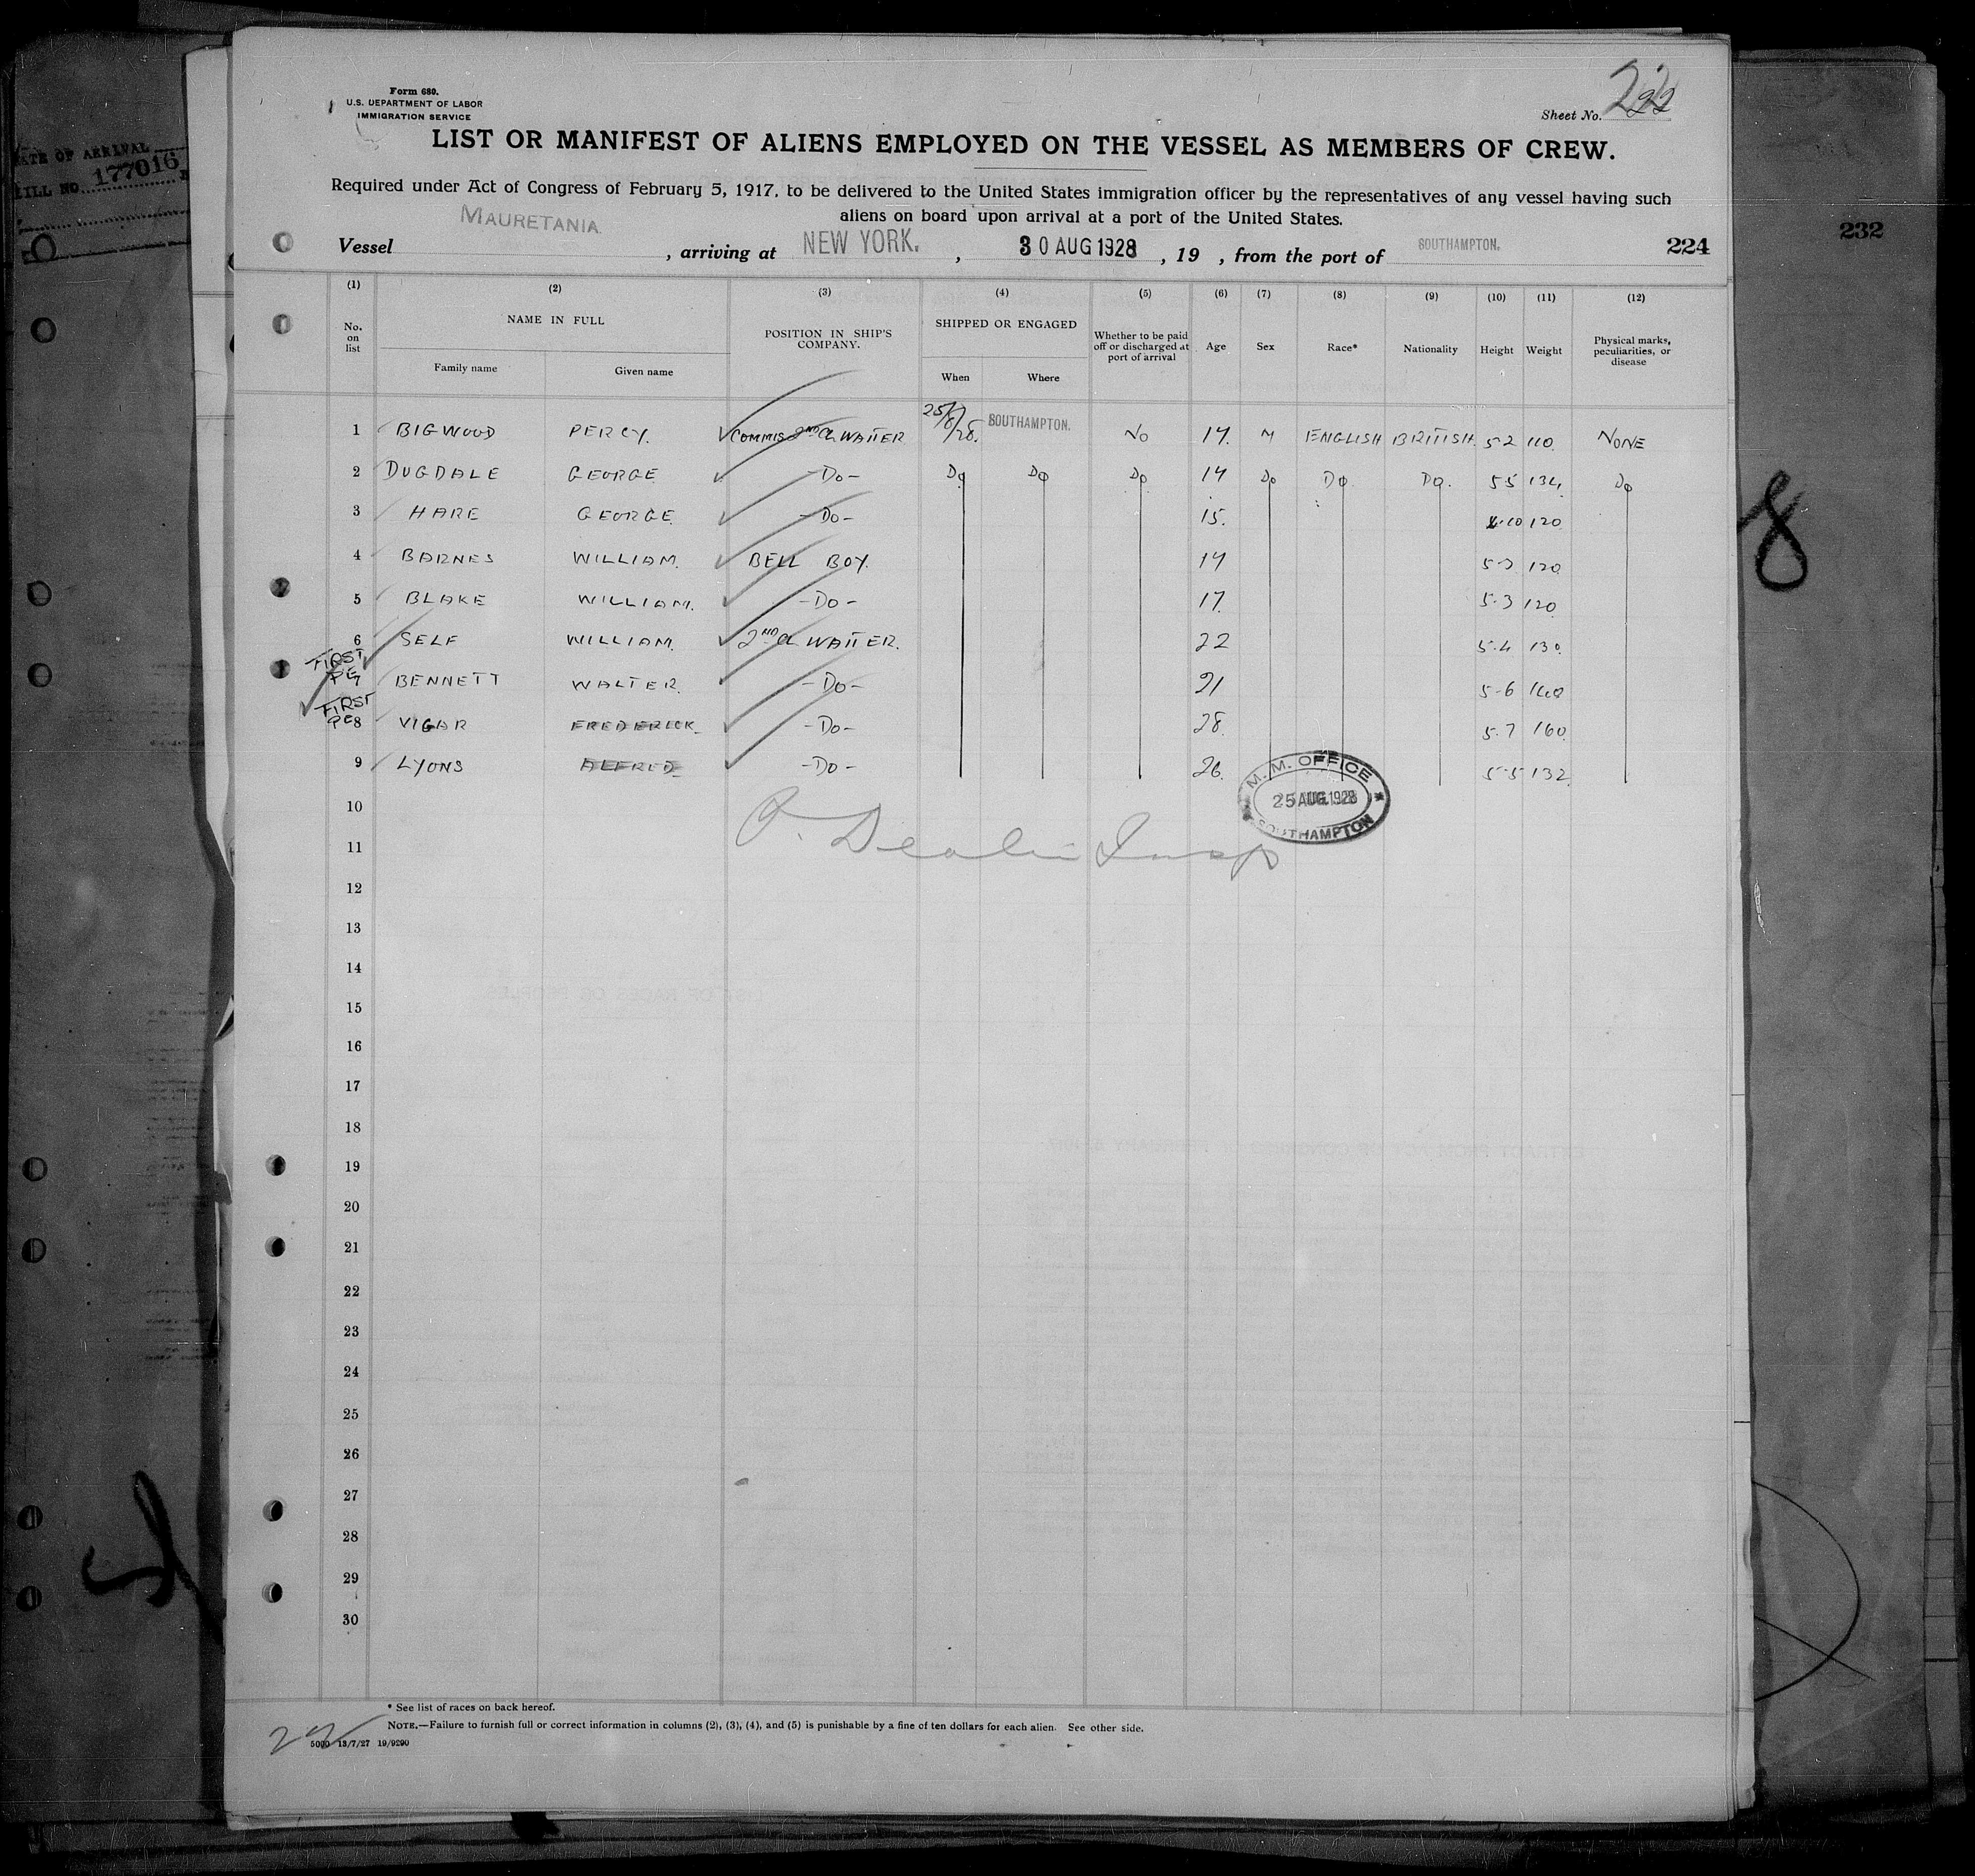 Form 680.
U.S. DEPARTMENT OF LABOR
IMMIGRATION SERVICE
Sheet No. 22
LIST OR MANIFEST OF ALIENS EMPLOYED ON THE VESSEL AS MEMBERS OF CREW.
Required under Act of Congress of February 5, 1917, to be delivered to the United States immigration officer by the representatives of any vessel having such
aliens on board upon arrival at a port of the United States.
Vessel MAURETANIA, arriving at NEW YORK., 30 AUG 1928, 19 , from the port of SOUTHAMPTON. 224
DATE OF ARRIVAL
177016
232
(1) (2) (3) (4) (5) (6) (7) (8) (9) (10) (11) (12)
No. on list NAME IN FULL POSITION IN SHIP'S COMPANY. SHIPPED OR ENGAGED Whether to be paid off or discharged at port of arrival Age Sex Race* Nationality Height Weight Physical marks, peculiarities, or disease
Family name Given name When Where
1 BIGWOOD PERCY. COMMIS 2ND CL WAITER 25/8/28. SOUTHAMPTON. NO 17. M ENGLISH BRITISH. 5-2 110 NONE
2 DUGDALE GEORGE -DO- DO DO DO 17 DO DO DO. 5-5 134 DO
3 HARE GEORGE. -DO- 15. 120
4 BARNES WILLIAM. BELL BOY. 17 120
5 BLAKE WILLIAM. -DO- 17. 5.3 120
6 SELF WILLIAM. 2ND CL WAITER. 22 5.4 130
FIRST
7 BENNETT WALTER. -DO- 21 5-6 140
FIRST
8 VIGAR FREDERICK. -DO- 28. 5.7 160
9 LYONS ALFRED -DO- 26. 5-5 132
M. M. OFFICE
25 AUG. 1928
SOUTHAMPTON
8
10
11
12
13
14
15
16
17
18
19
20
21
22
23
24
25
26
27
28
29
30
* See list of races on back hereof.
NOTE.—Failure to furnish full or correct information in columns (2), (3), (4), and (5) is punishable by a fine of ten dollars for each alien. See other side.
5000 13/7/27 19/9290